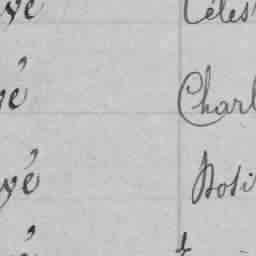 yé Céles
yé Charl
yé Rosi
é